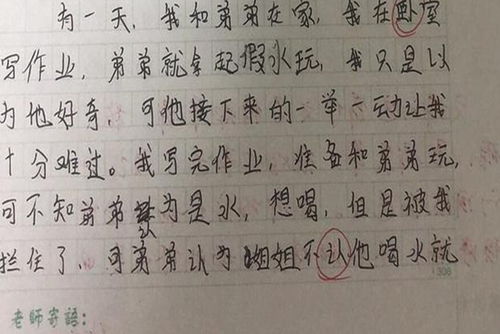 有一天，我和弟弟在家，我在卧室
写作业，弟弟就拿起假水玩，我只是以
为他好奇，可他接下来的一举一动让我
十分难过。我写完作业，准备和弟弟玩，
可不知弟弟认为是水，想喝，但是被我
拦住了，可弟弟认为姐姐不认他喝水就
308
老師寄語：